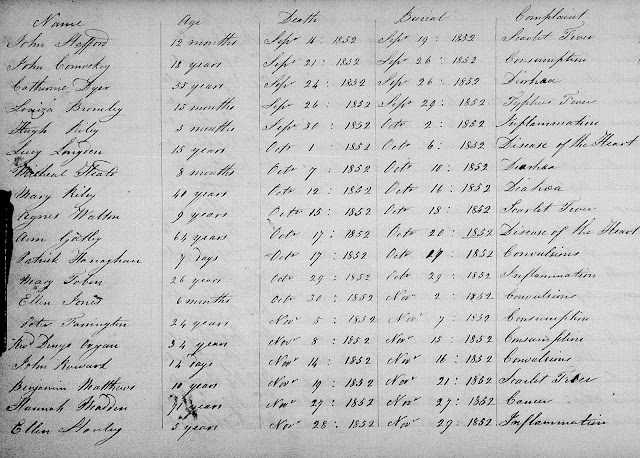 Name Age Death Burial Complaint
John Stafford 12 months Sepr 16 : 1852 Sepr 19 : 1852 Scarlet Fever
John Comoskey 18 years Sepr 21 : 1852 Sepr 26 : 1852 Consumption
Catherine Dyer 55 years Sepr 24 : 1852 Sepr 26 : 1852 Diarhoa
Louiza Bromley 15 months Sepr 26 : 1852 Sepr 29 : 1852 Typhus Fever
Hugh Riley 5 months Sepr 30 : 1852 Octr 2 : 1852 Inflammation
Lucy 15 years Octr 1 : 1852 Octr 6 : 1852 Disease of the Heart
Micheal 8 months Octr 7 : 1852 Octr 10 : 1852 Diarhoa
Mary Riley 40 years Octr 12 : 1852 Octr 16 : 1852 Diarhoa
Agnes Walton 9 years Octr 15 : 1852 Octr 18 : 1852 Scarlet Fever
Ann Gatley 64 years Octr 17 : 1852 Octr 20 : 1852 Disease of the Heart
Patrick Flanaghan 7 days Octr 17 : 1852 Octr 27 : 1852 Convulsions
Mary Tobin 26 years Octr 29 : 1852 Octr 29 : 1852 Inflammation
Ellen Jones 6 months Octr 30 : 1852 Novr 2 : 1852 Convulsions
Peter Farrington 24 years Novr 5 : 1852 Novr 7 : 1852 Consumption
Revd Denys Organ 34 years Novr 8 : 1852 Novr 15 : 1852 Consumption
John Rowart 14 days Novr 14 : 1852 Novr 16 : 1852 Convulsions
Benjamin Matthews 10 years Novr 19 : 1852 Novr 21 : 1852 Scarlet Fever
Hannah Headen 71 years Novr 29 : 1852 Novr 27 : 1852 Cancer
Ellen Stanley 5 years Novr 28 : 1852 Novr 29 : 1852 Inflammation